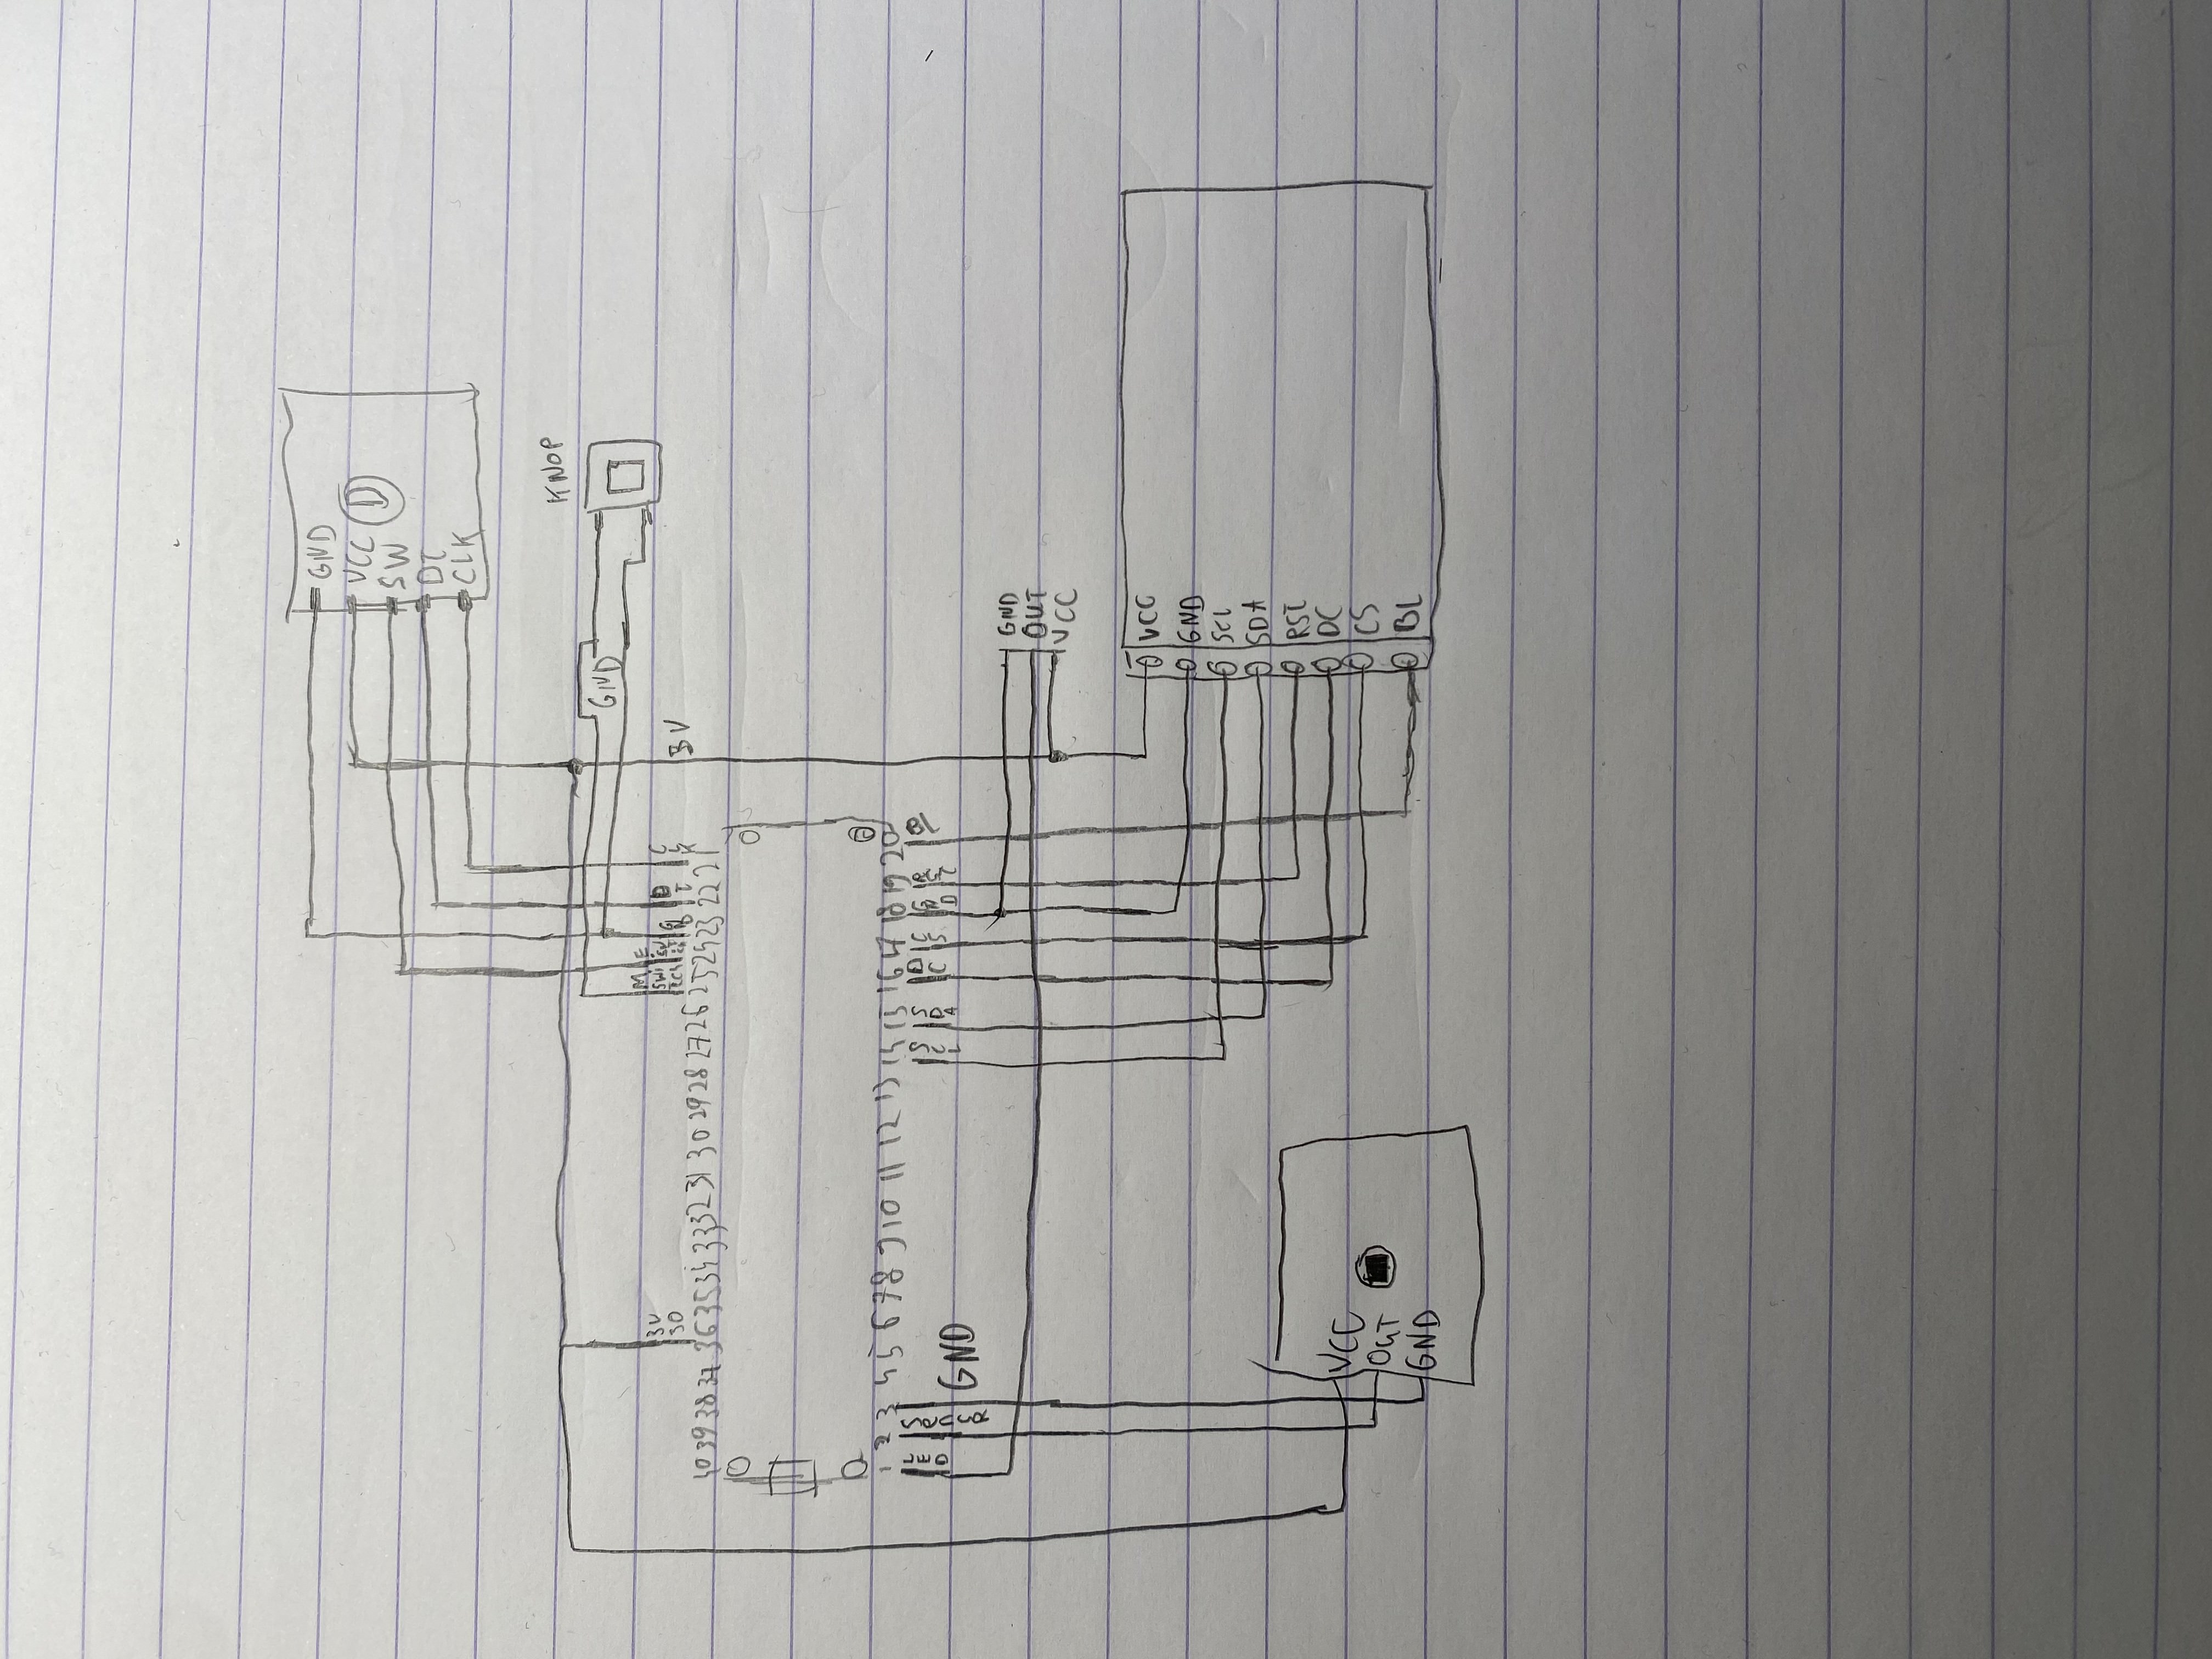 GND
VCC
D
SW
DT
CLK
KNOP
GND
M
SWI
TCH
E
SWITCH
GND
DT
CLK
3V
3V
30
40 39 38 37 36 35 34 33 32 31 30 29 28 27 26 25 24 23 22 21
1 2 3 4 5 6 7 8 9 10 11 12 13 14 15 16 17 18 19 20
LED
GND
SCL
SDA
DC
CS
GND
RST
BL
GND
OUT
VCC
VCC
GND
SCL
SDA
RST
DC
CS
BL
VCC
OUT
GND